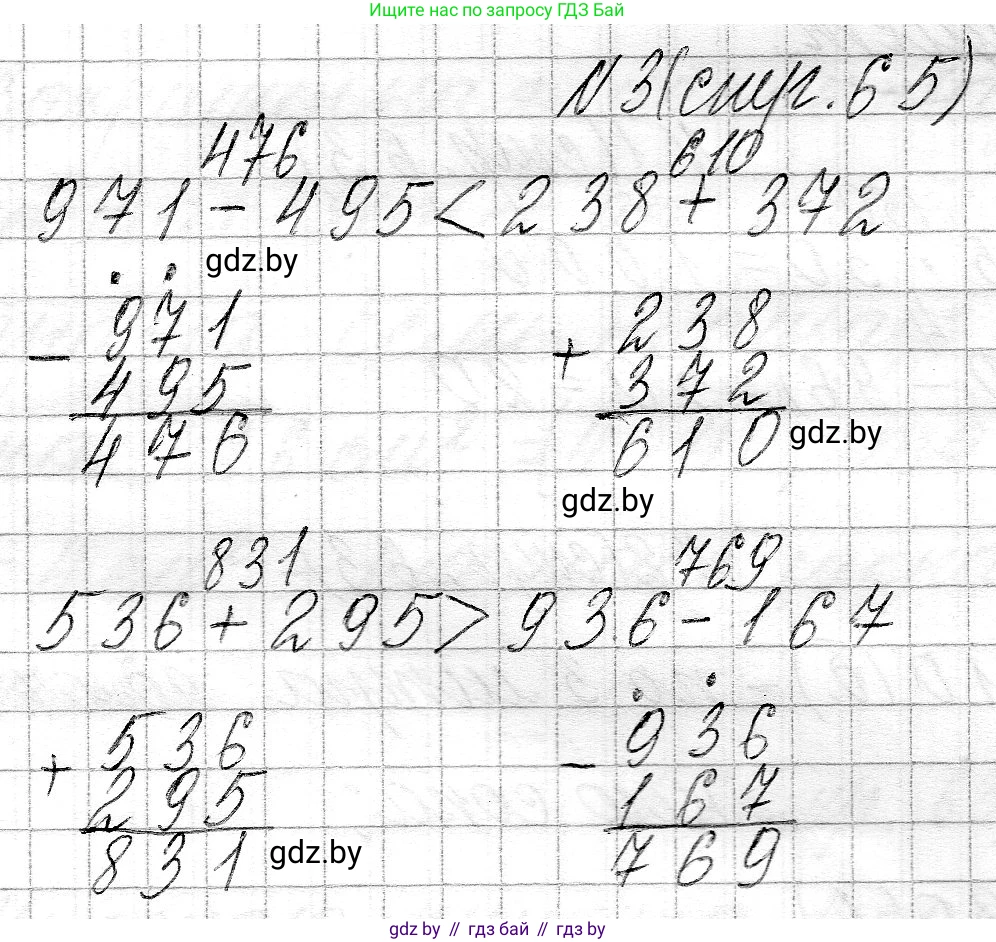 Ищите нас по запросу ГДЗ Бай
N 3 (стр. 65)
476 610
971 - 495 < 238 + 372
gdz.by
- 971 + 238
495 372
476 610 gdz.by
gdz.by
831 769
536 + 295 > 936 - 167
+ 536 - 936
295 167
831 gdz.by 769
gdz.by // гдз бай // gdz.by